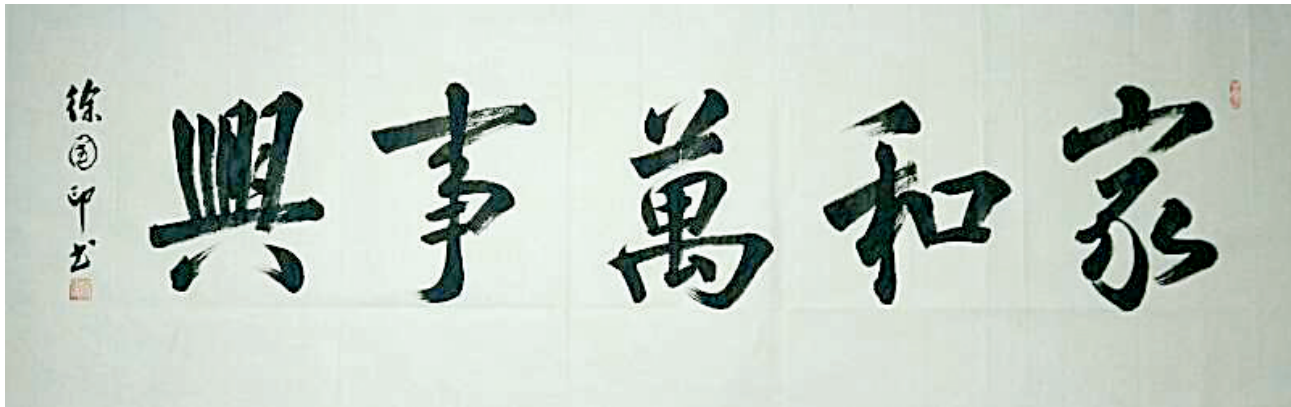 家和萬事興
徐國印书